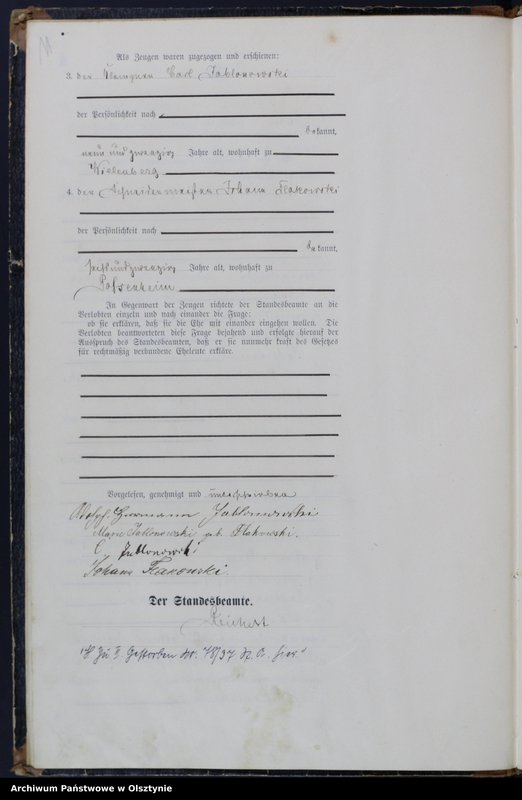 Als Zeugen waren zugezogen und erschienen:
3. der Klempner Carl Jablonowski
der Persönlichkeit nach
bekannt,
neun und zwanzig Jahre alt, wohnhaft zu
Willenberg
4. der Schneidermeister Johann Flakowski
der Persönlichkeit nach
bekannt,
sechsundzwanzig Jahre alt, wohnhaft zu
Passenheim
In Gegenwart der Zeugen richtete der Standesbeamte an die
Verlobten einzeln und nach einander die Frage:
ob sie erklären, daß sie die Ehe mit einander eingehen wollen. Die
Verlobten beantworteten diese Frage bejahend und erfolgte hierauf der
Ausspruch des Standesbeamten, daß er sie nunmehr kraft des Gesetzes
für rechtmäßig verbundene Eheleute erkläre.
Vorgelesen, genehmigt und unterschrieben
Adolf Hermann Jablonowski
Marie Jablonowski geb. Flakowski.
C. Jablonowski
Johann Flakowski.
Der Standesbeamte.
Reichert
Zu 2. Gestorben Nr. 78/37 St. A. hier
Archiwum Państwowe w Olsztynie